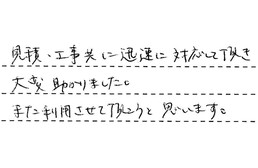 見積・工事共に迅速に対応して下さき
大変助かりました。
また利用させて下さろうと思います。